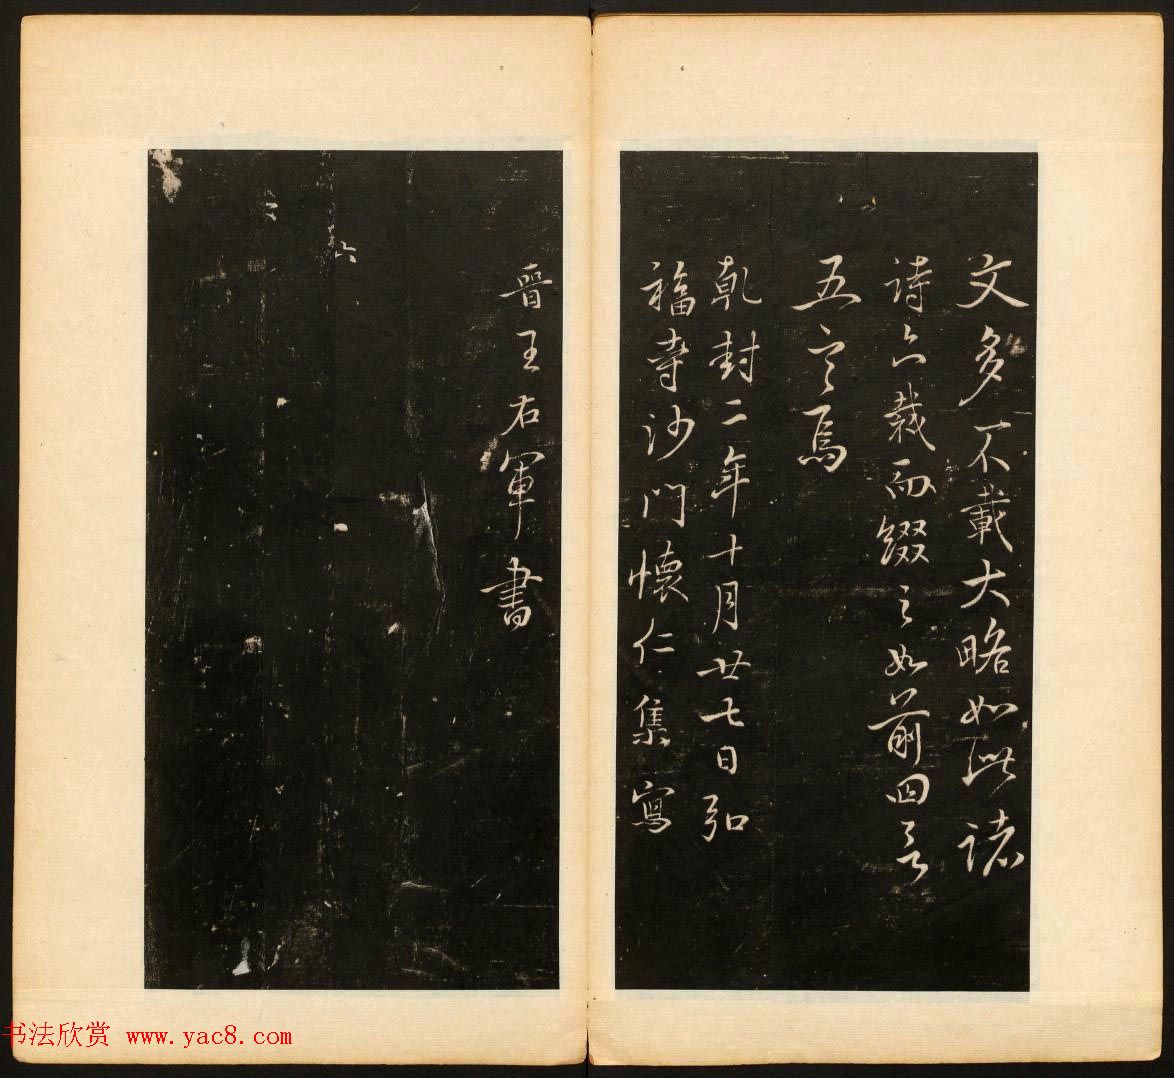 文多不載大略如此諸
詩亦裁而綴之如前四言
五言焉
乾封二年十月廿七日弘
福寺沙門懷仁集寫
晉王右軍書
书法欣赏 www.yac8.com